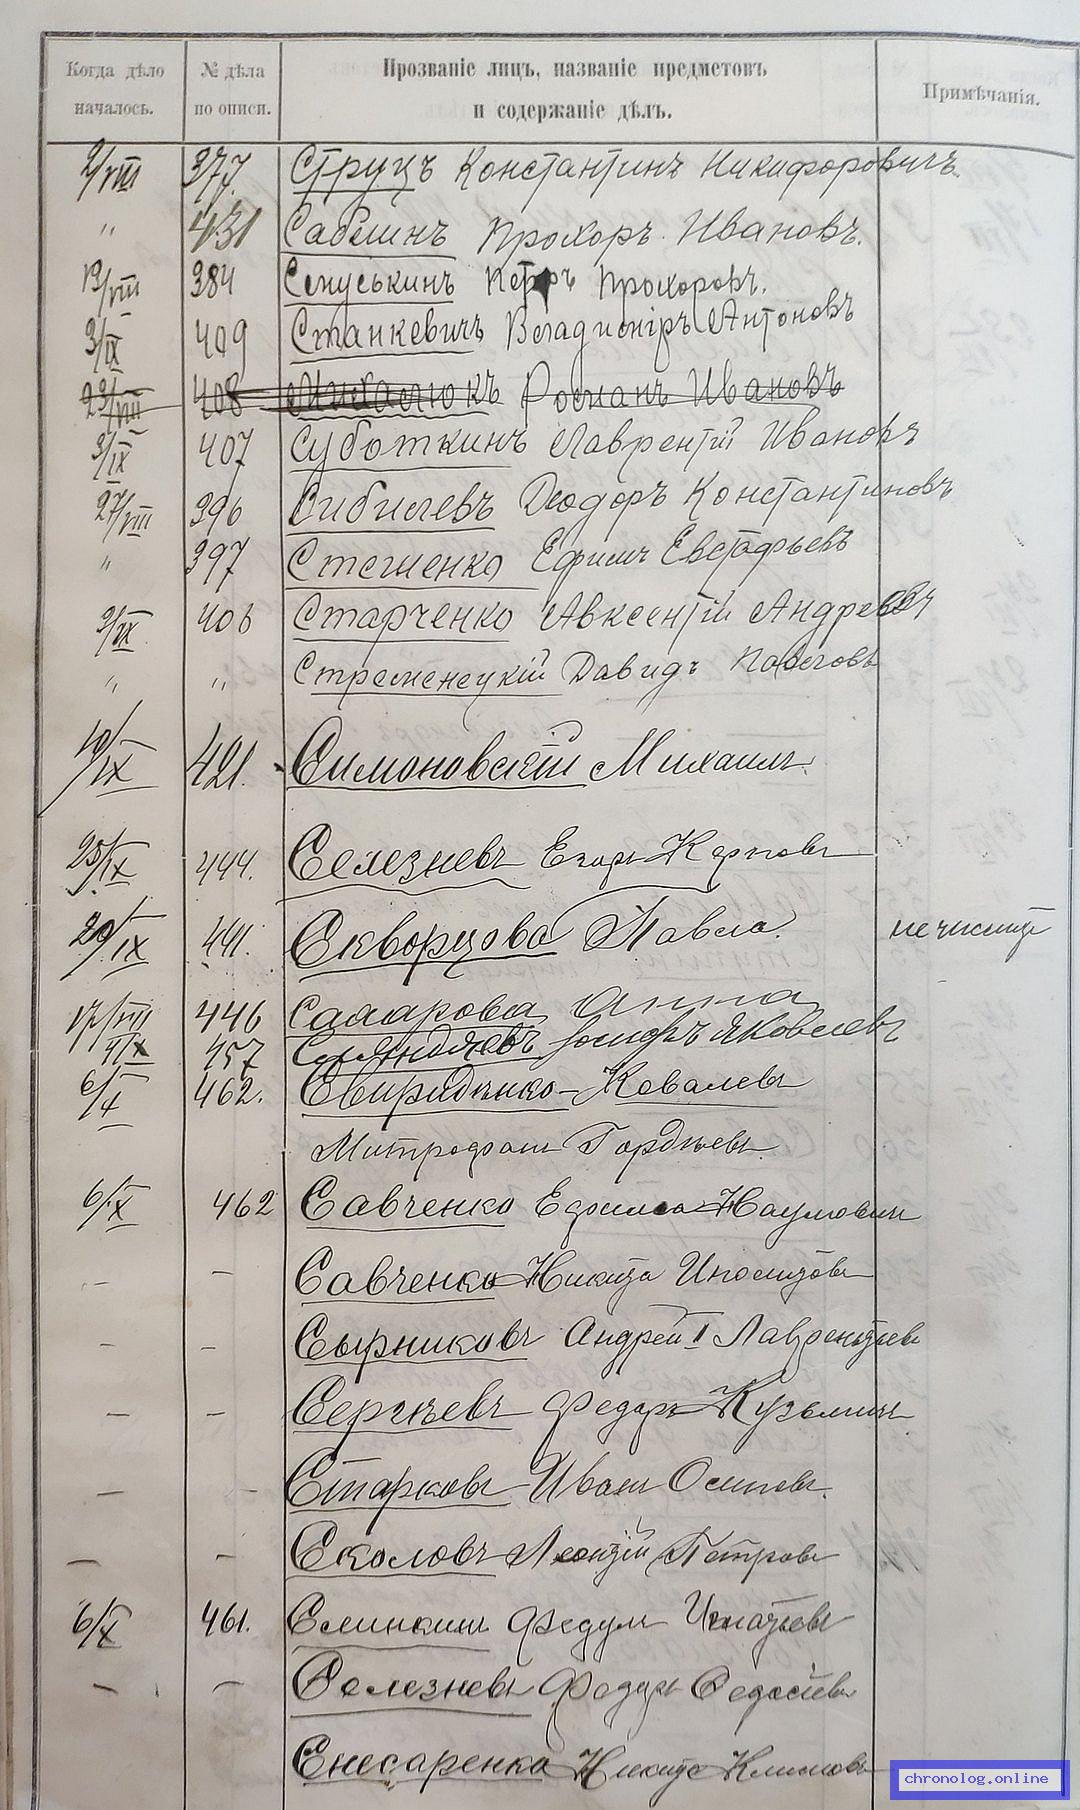 Когда дѣло началось.
№ дѣла по описи.
Прозваніе лицъ, названіе предметовъ
и содержаніе дѣлъ.
Примѣчанія.
2/VIII 377. Струцъ Константинъ Никифоровичъ.
" 431 Саблинъ Прохоръ Ивановъ.
19/VIII 384 Сенуськинъ Петръ Прохоровъ.
3/IX 409 Станкевичъ Владиміръ Антоновъ
23/VIII 408 Михалюкъ Романъ Ивановъ
3/IX 407 Суботкинъ Лаврентій Ивановъ
27/VIII 396 Сибилевъ Ѳеодоръ Константиновъ
" 397 Стешенко Ефимъ Евстафьевъ
3/IX 406 Старченко Авксентій Андреевъ
" " Стременецкій Давидъ Павловъ
10/IX 421. Симоновскій Михаилъ.
25/IX 444. Селезневъ Егоръ Карповъ
29/IX 441. Скворцова Павла. не числит
17/VIII 446 Самарова Анна
4/X 457 Іосифъ Яковлевъ
6/X 462. Свириденко-Ковалевъ
Митрофанъ Гордѣевъ.
6/X 462 Савченко Ефимъ Наумовичъ
— — Савченко Никита Ипполитовъ
— — Сырниковъ Андрей I Лаврентьевъ
— — Сергѣевъ Федоръ Кузьминъ
— — Старковъ Иванъ Осиповъ.
— — Соколовъ Леонтій Петровъ
6/X 461. Семинкинъ Федулъ Игнатьевъ
— — Селезневъ Федоръ Федосѣевъ
Снесаренко Никита Климовъ
chronolog.online